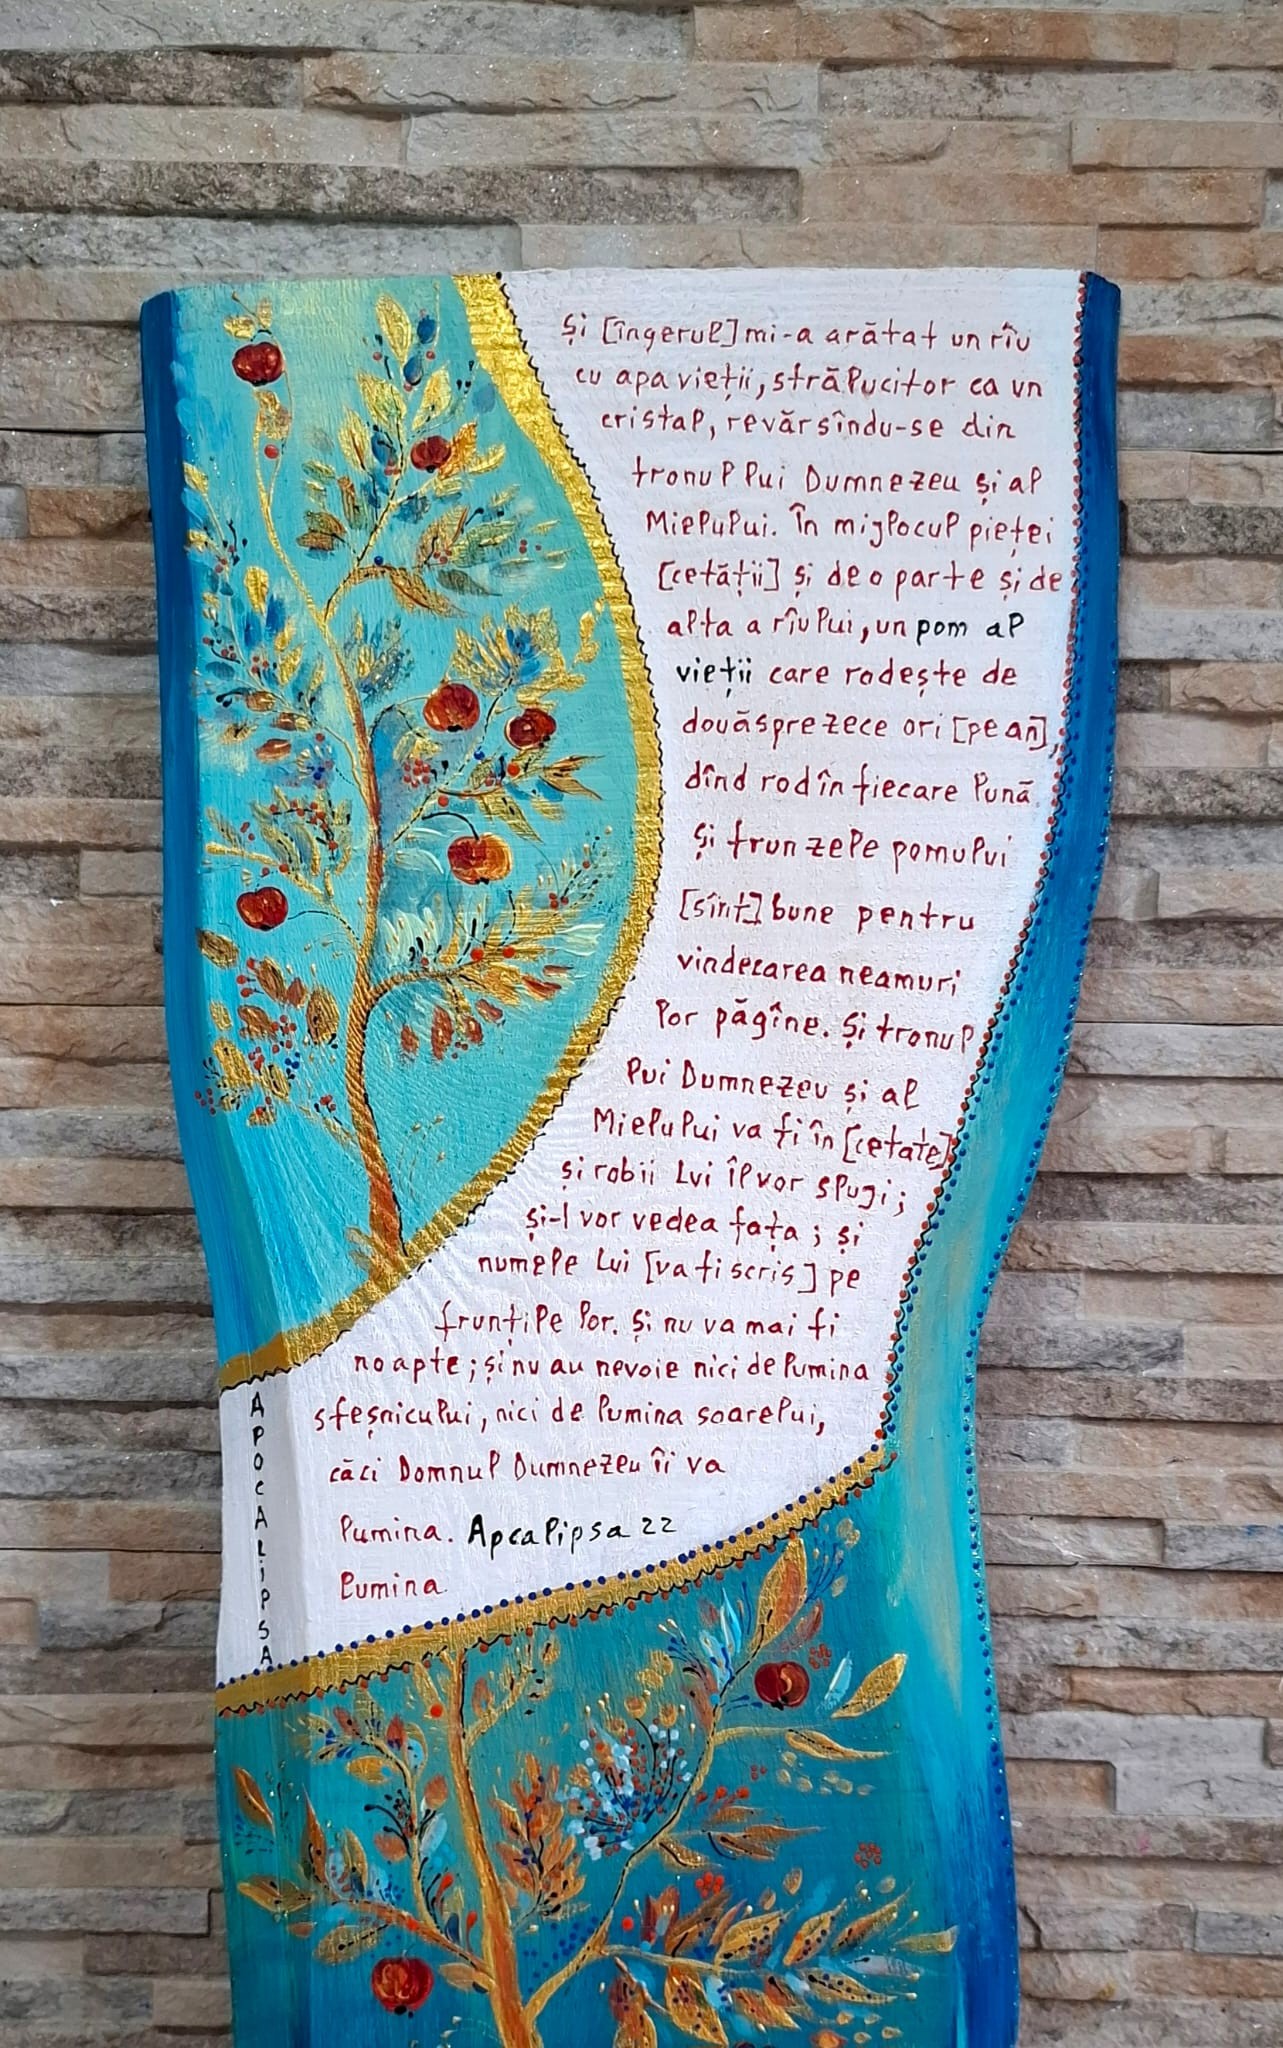 Și [îngerul] mi-a arătat un rîu
cu apa vieții, strălucitor ca un
cristal, revărsîndu-se din
tronul lui Dumnezeu și al
Mielului. În mijlocul pieței
[cetății] și de o parte și de
alta a rîului, un pom al
vieții care rodește de
douăsprezece ori [pe an],
dînd rod în fiecare lună.
Și frunzele pomului
[sînt] bune pentru
vindecarea neamuri
lor păgîne. Și tronul
lui Dumnezeu și al
Mielului va fi în [cetate]
și robii Lui îl vor slugi;
și-I vor vedea fața; și
numele Lui [va fi scris] pe
frunțile lor. Și nu va mai fi
noapte; și nu au nevoie nici de lumina
sfeșnicului, nici de lumina soarelui,
căci Domnul Dumnezeu îi va
lumina. Apcalipsa 22
lumina
APOCALiPSA